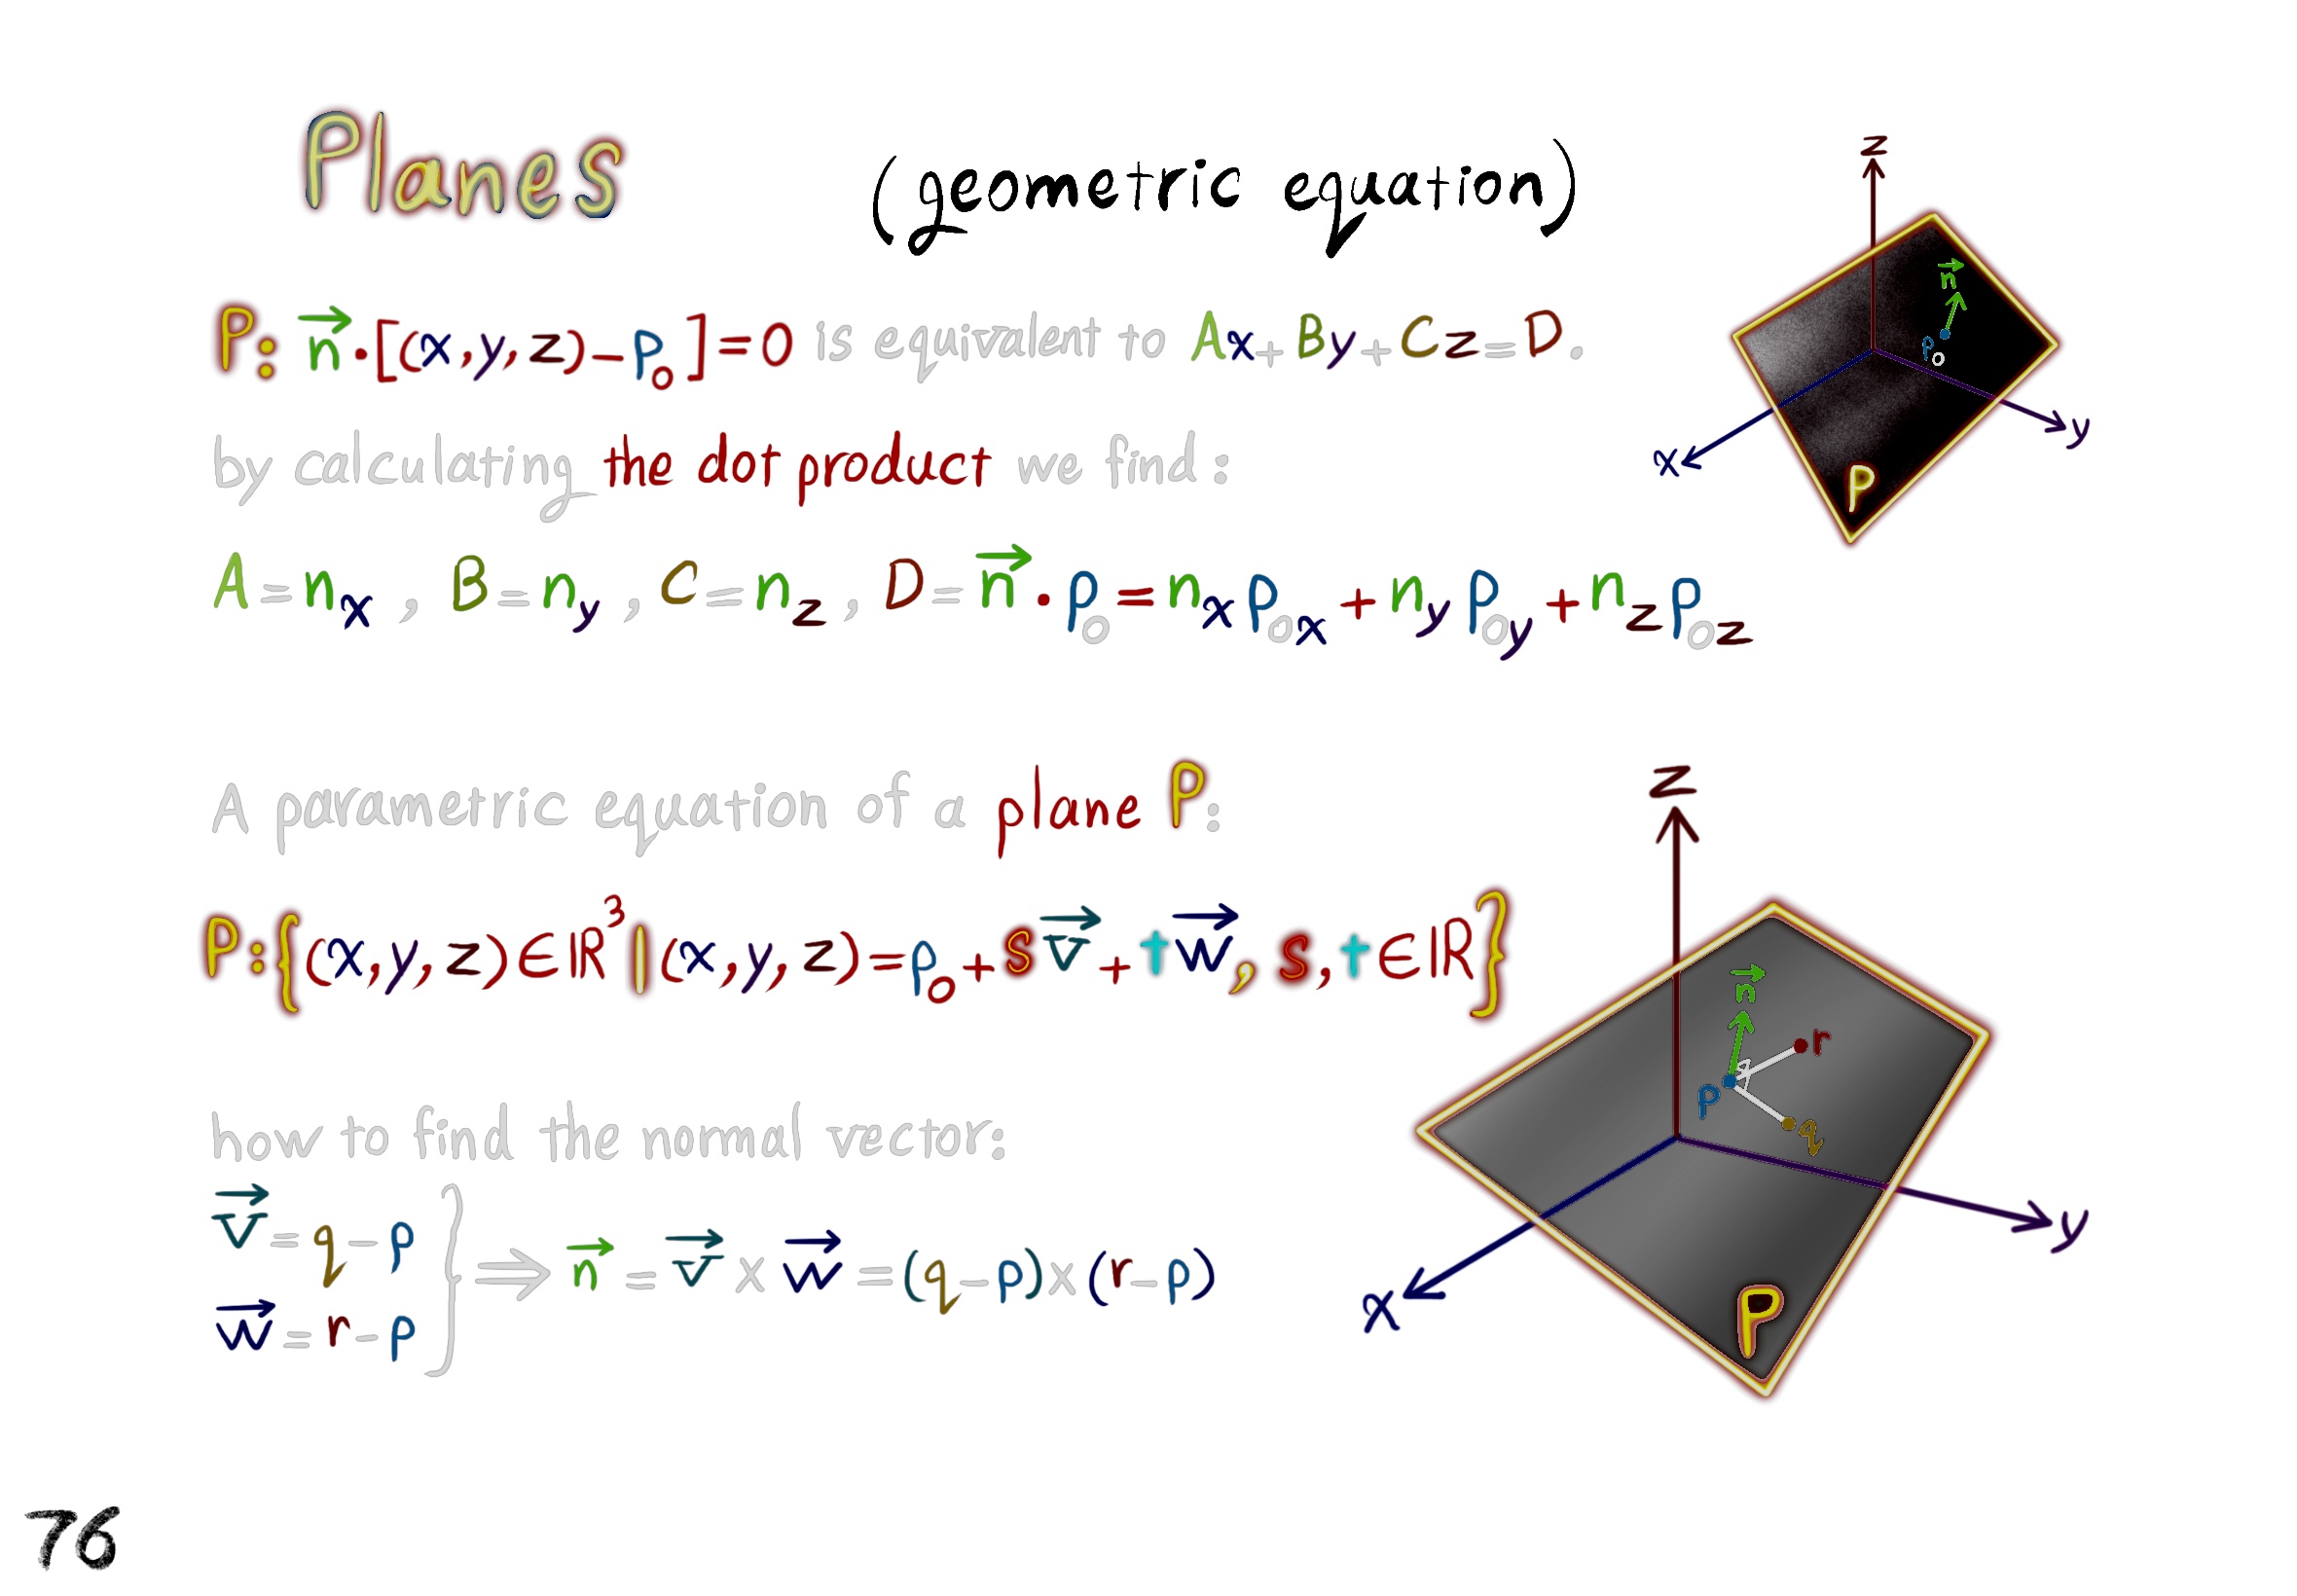 Planes (geometric equation)
P: n⃗·[(x,y,z)-p₀]=0 is equivalent to Ax+By+Cz=D.
by calculating the dot product we find:
A=nₓ, B=n_y, C=n_z, D=n⃗·p₀=nₓp₀ₓ+n_yp₀_y+n_zp₀_z
z
n⃗
p₀
x
y
P
A parametric equation of a plane P:
P:{(x,y,z)∈ℝ³|(x,y,z)=p₀+sv⃗+tw⃗, s,t∈ℝ}
how to find the normal vector:
v⃗=q-p
w⃗=r-p
} ⇒ n⃗=v⃗×w⃗=(q-p)×(r-p)
z
n⃗
r
p
q
y
x
P
76